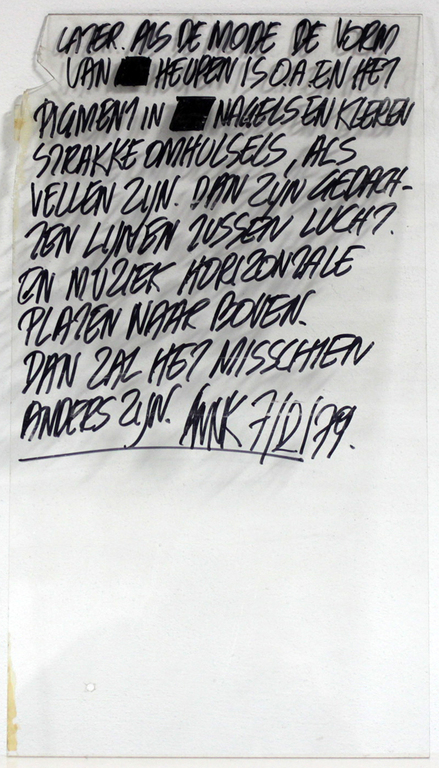 LATER. ALS DE MODE DE VORM
VAN HEUPEN IS O.A. EN HET
PIGMENT IN NAGELS EN KLEREN
STRAKKE OMHULSELS, ALS
VELLEN ZIJN. DAN ZIJN GEDACH-
TEN LIJNEN TUSSEN LUCHT.
EN MUZIEK HORIZONTALE
PLATEN NAAR BOVEN.
DAN ZAL HET MISSCHIEN
ANDERS ZIJN. 79.